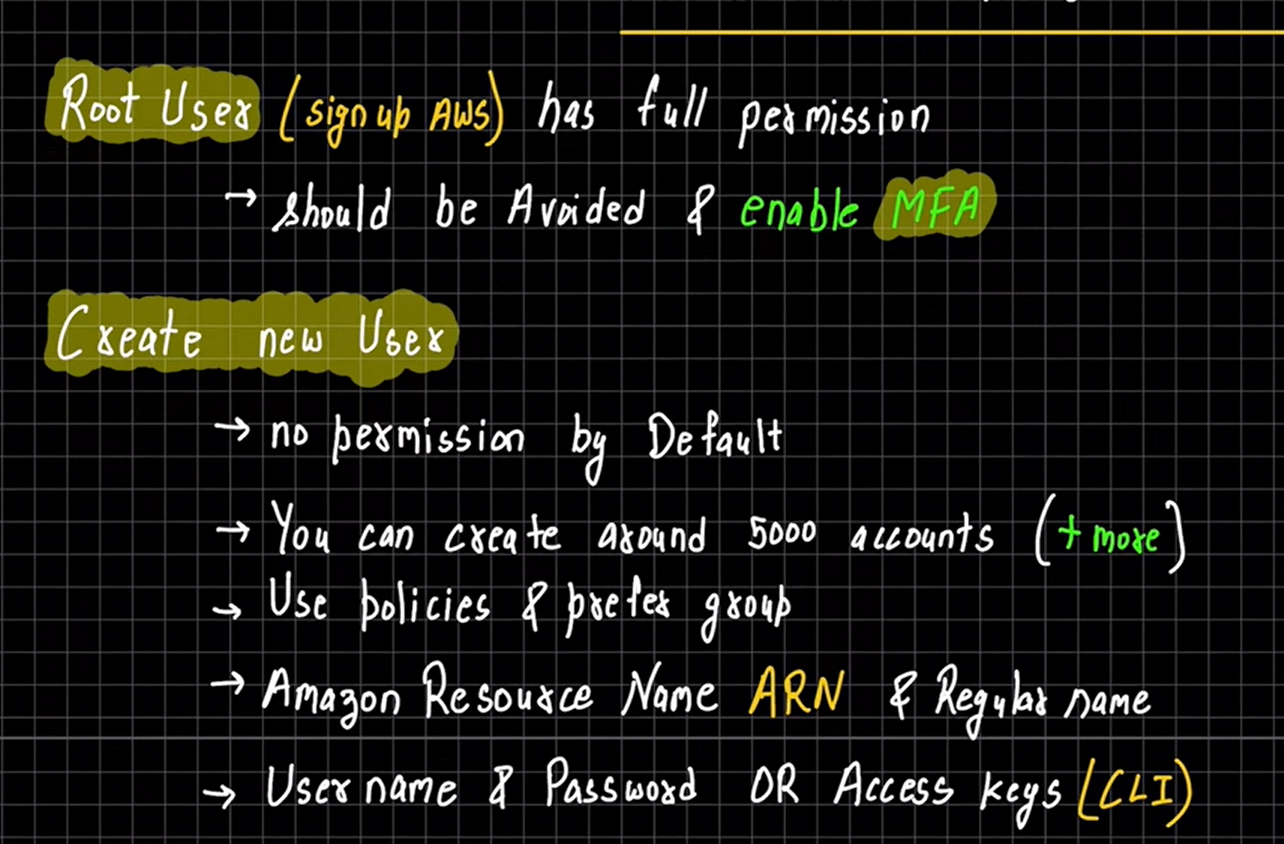 Root User (sign up AWS) has full permission
→ should be Avoided & enable MFA
Create new User
→ no permission by Default
→ You can create around 5000 accounts (+ more)
→ Use policies & prefer group
→ Amazon Resource Name ARN & Regular name
→ User name & Password OR Access keys (CLI)